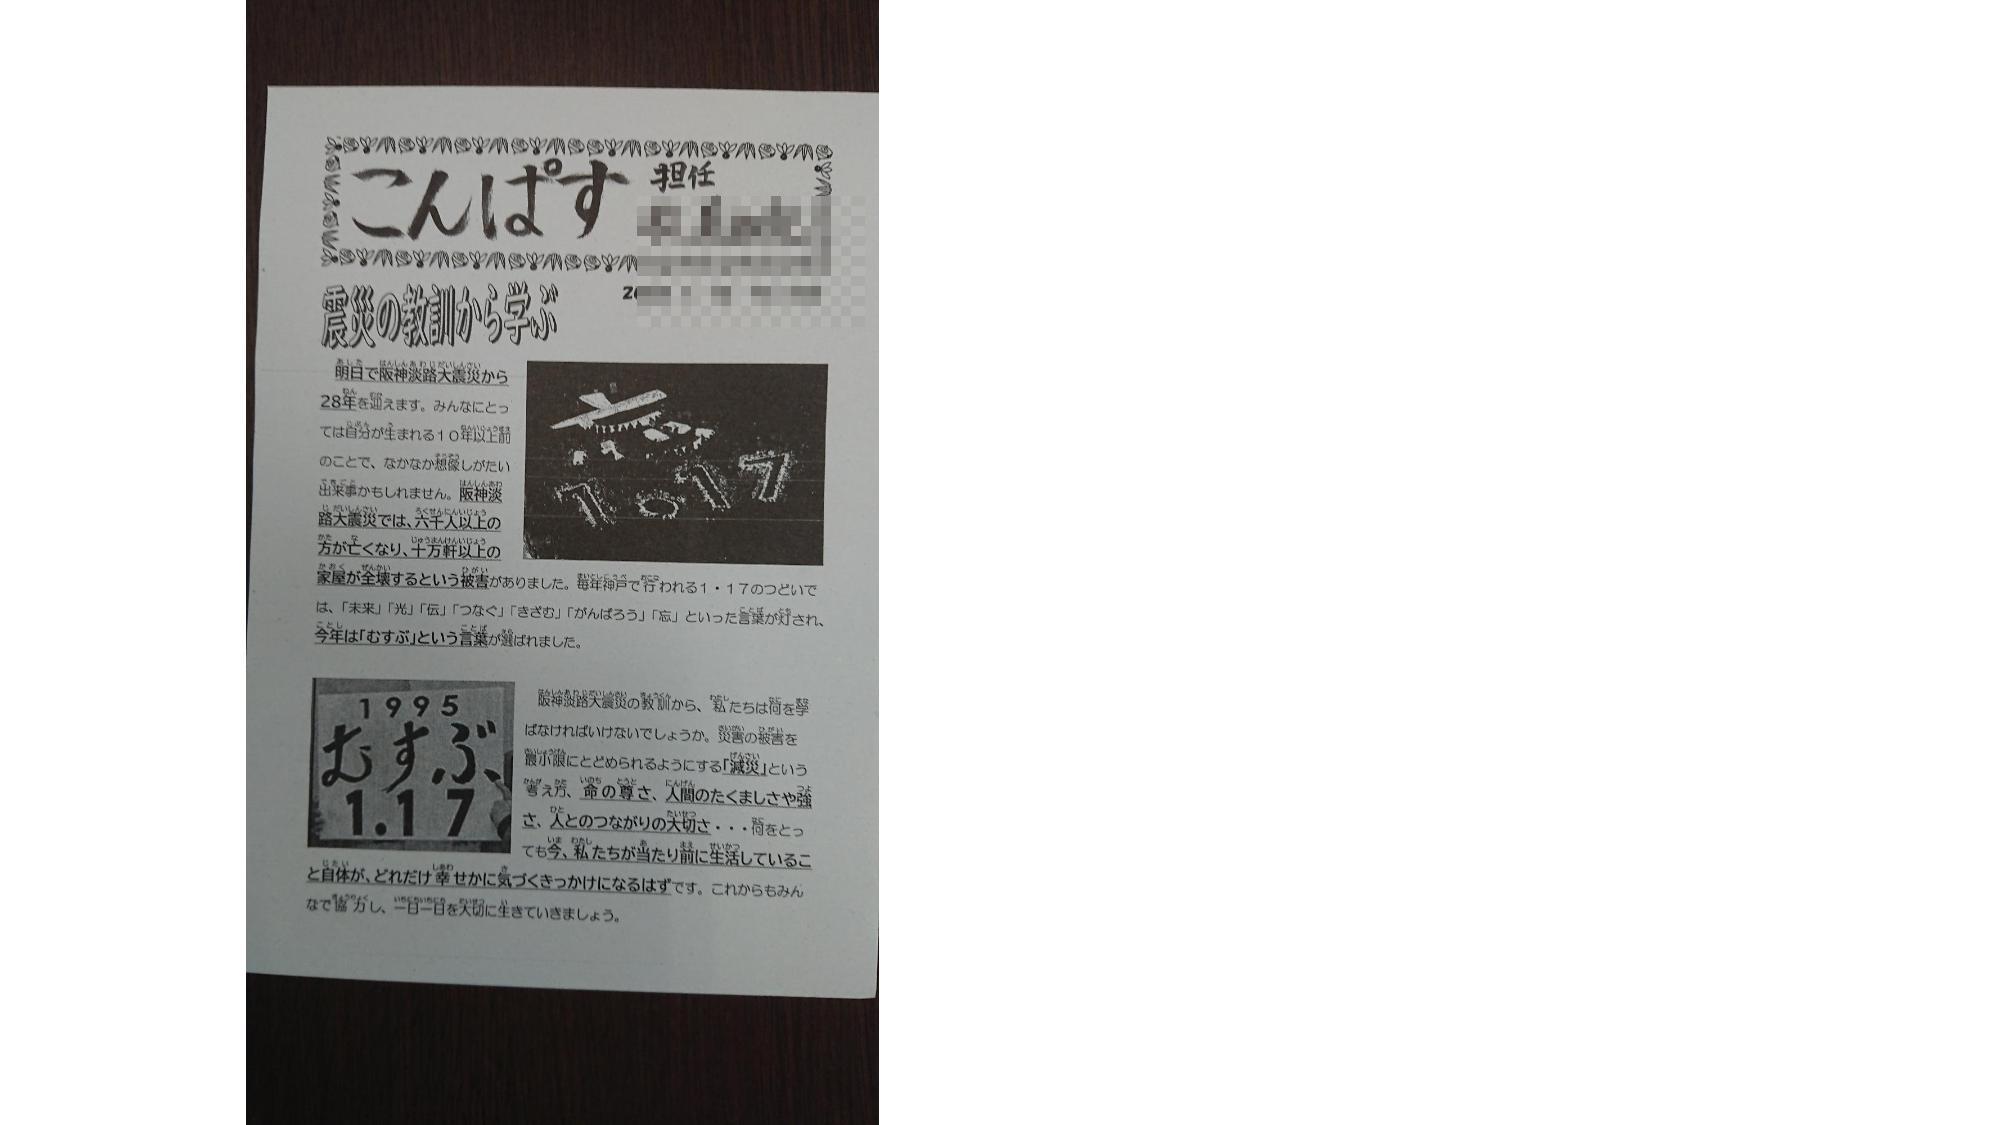 こんぱす
担任
震災の教訓から学ぶ
明日で阪神淡路大震災から
28年を迎えます。みんなにとっ
ては自分が生まれる１０年以上前
のことで、なかなか想像しがたい
出来事かもしれません。阪神淡
路大震災では、六千人以上の
方が亡くなり、十万軒以上の
家屋が全壊するという被害がありました。毎年神戸で行われる１・１７のつどいで
は、「未来」「光」「伝」「つなぐ」「きざむ」「がんばろう」「忘」といった言葉が灯され、
今年は「むすぶ」という言葉が選ばれました。
1 17
1995
むすぶ
1.17
阪神淡路大震災の教訓から、私たちは何を学
ばなければいけないでしょうか。災害の被害を
最小限にとどめられるようにする「減災」という
考え方、命の尊さ、人間のたくましさや強
さ、人とのつながりの大切さ・・・何をとっ
ても今、私たちが当たり前に生活しているこ
と自体が、どれだけ幸せかに気づくきっかけになるはずです。これからもみん
なで協力し、一日一日を大切に生きていきましょう。